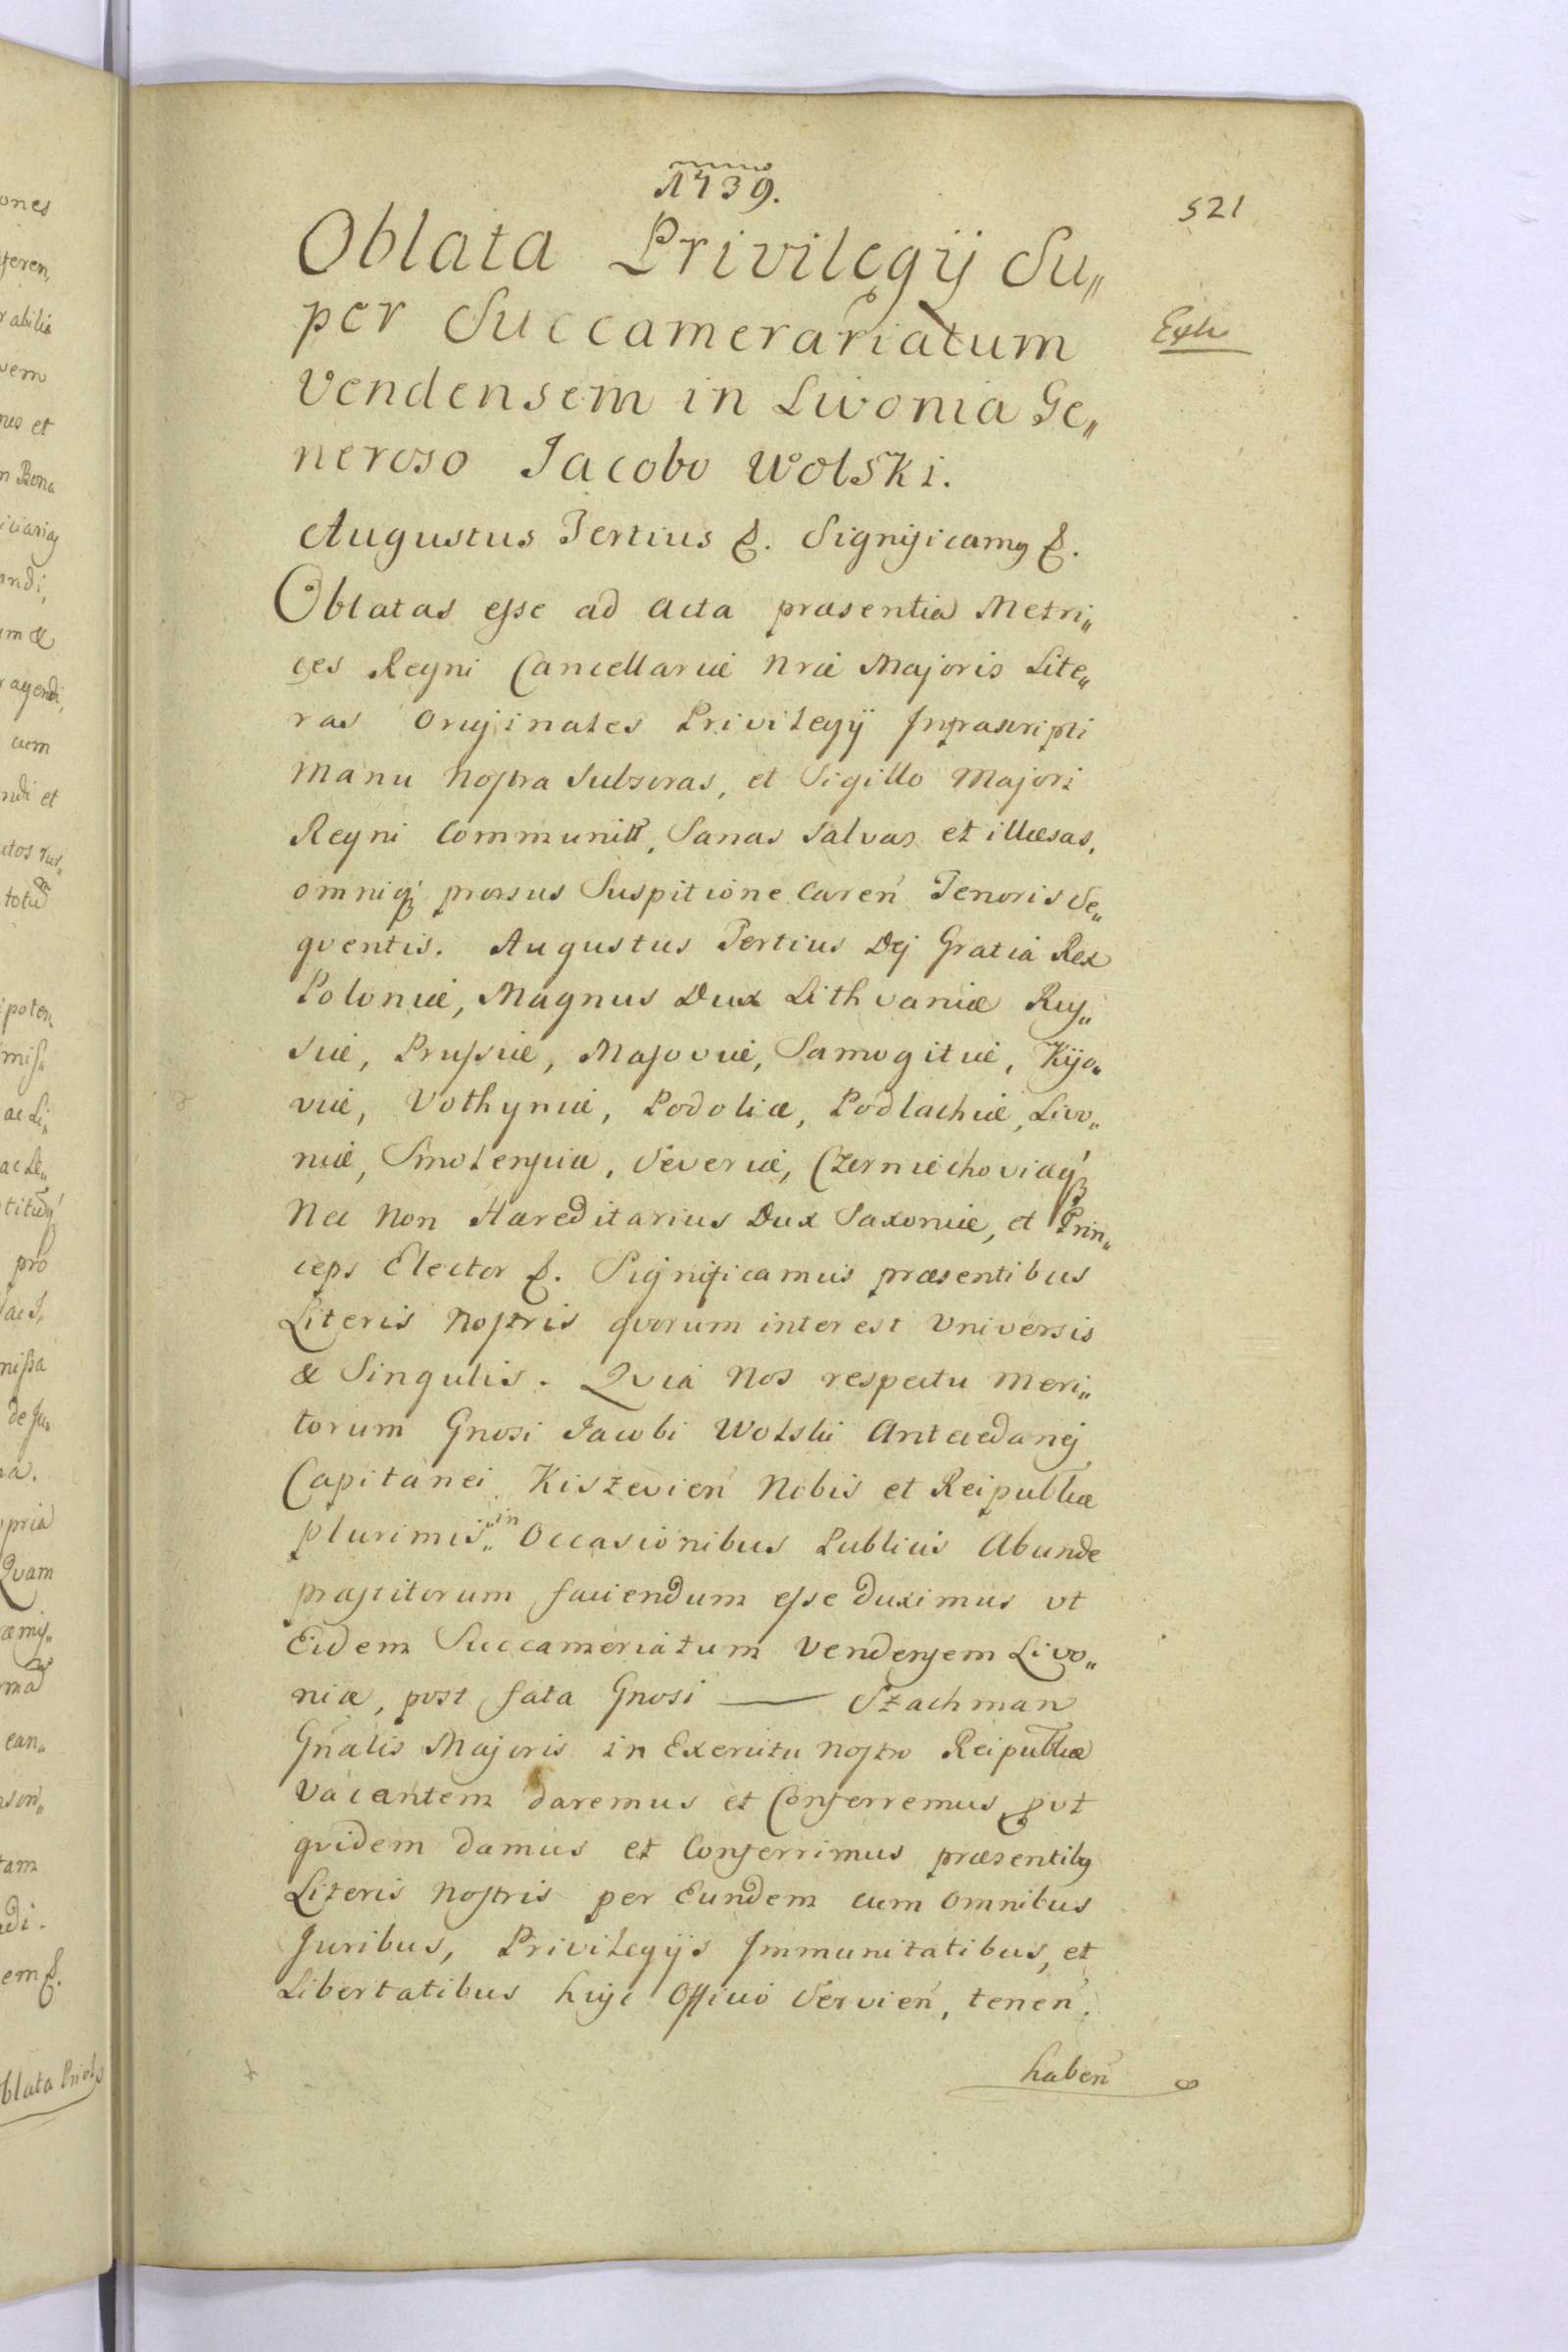 anno
1739.
521
Oblata Privilegij Su„
per Succamerariatum
Extr
Vendensem in Livonia Ge„
neroso Jacobo Wolski.
Augustus Tertius &. Significamq &.
Oblatas esse ad acta præsentia Metri„
ces Regni Cancellariæ Nræ Majoris Lite„
ras Originales Privilegij Infrascripti
Manu Nostra Subscras, et Sigillo Majori
Regni Communitt, Sanas Salvas et illæsas,
omniq; prorsus Suspitione Caren̄ Tenoris Se„
qventis. Augustus Tertius Dej Gratia Rex
Poloniæ, Magnus Dux Lithvaniæ Rus„
siæ, Prussiæ, Masoviæ, Samogitiæ, Kijo„
viæ, Volhyniæ, Podoliæ, Podlachiæ, Livo„
niæ, Smolensciæ, Severiæ, Czerniechoviæq;
Nec Non Hæreditarius Dux Saxoniæ, et Prin„
ceps Elector &. Significamus præsentibus
Literis Nostris qvorum interest Vniversis
& Singulis. Qvia Nos respectu Meri„
torum Gnosi Jacobi Wolski Antecedanej
Capitanei Kiszevien̄ Nobis et Reipubllæ
plurimis „in Occasionibus Publicis Abunde
præstitorum faciendum esse duximus vt
Eidem Succameriatum Vendensem Livo„
niæ, post fata Gnosi — Szachman
Gn̄alis Majoris in Exercitu Nostro Reipubllæ
Vacantem daremus et Conferremus, put
qvidem damus et Conferrimus præsentibq
Literis Nostris per Eundem cum Omnibus
Juribus, Privilegijs Immunitatibus, et
Libertatibus huic Officio Servien̄, tenen̄.
haben̄